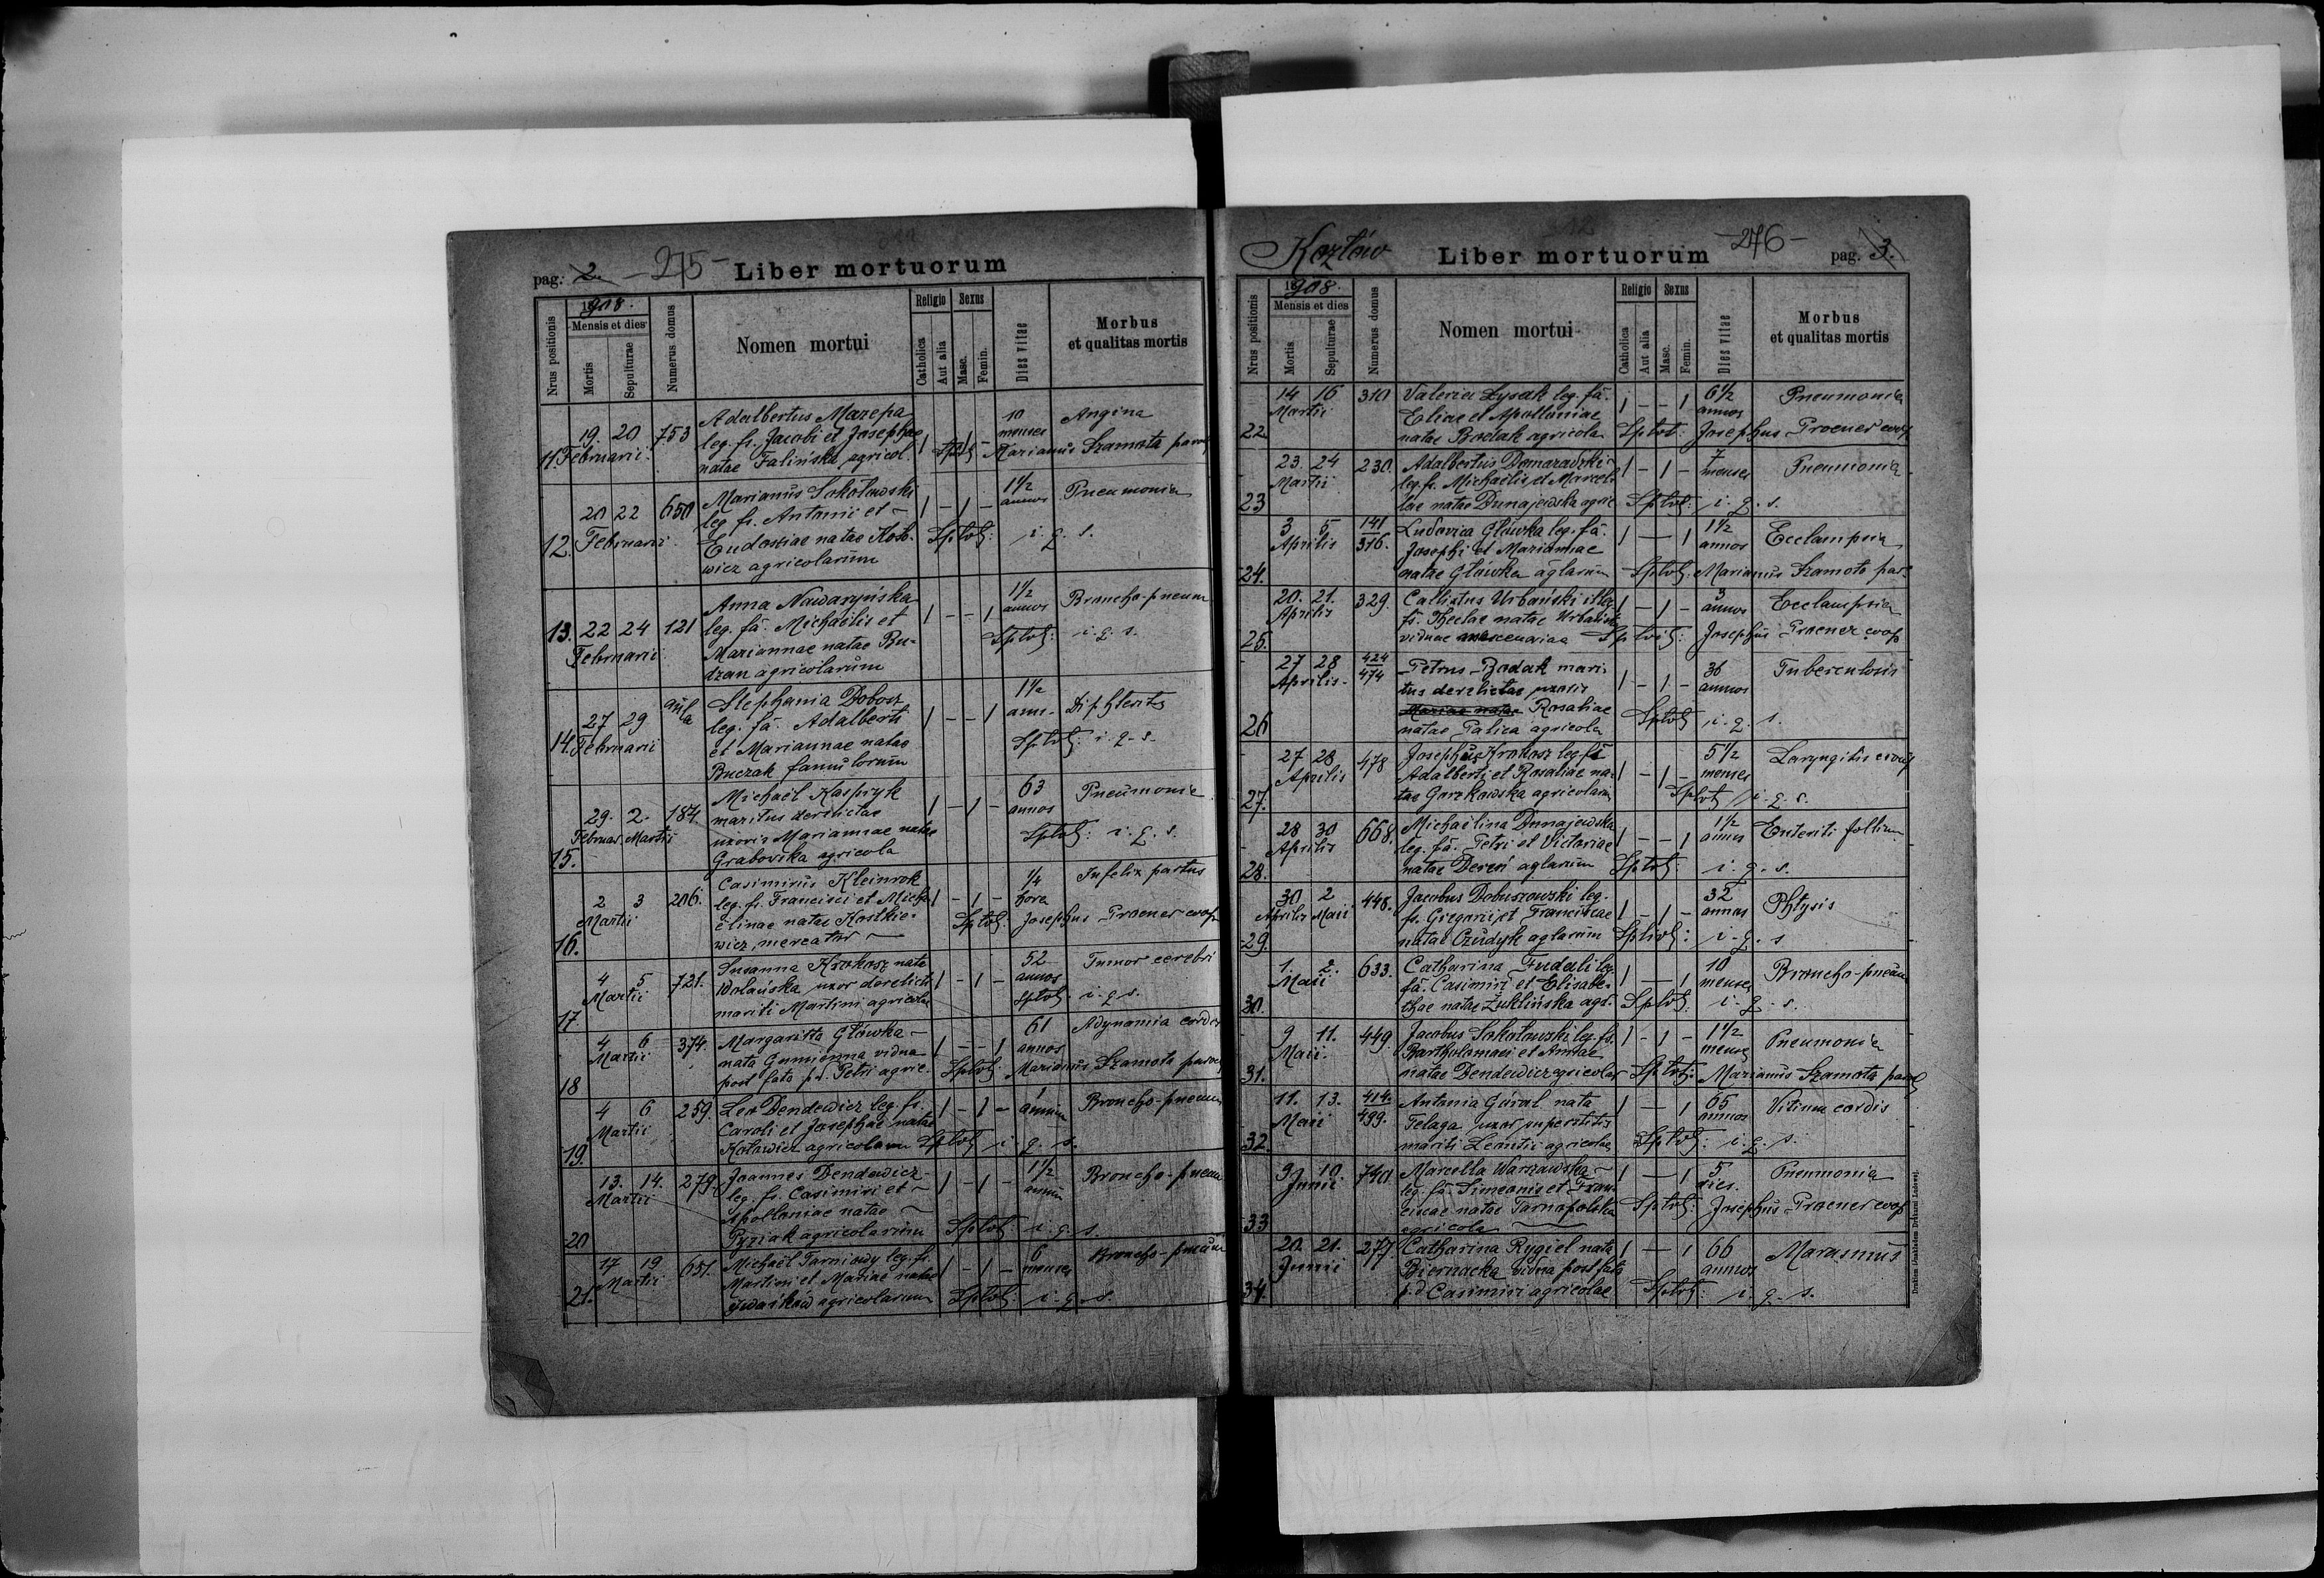 pag. 2. -275- Liber mortuorum
Nrus positionis
1908.
Mensis et dies
Mortis
Sepulturae
Numerus domus
Nomen mortui
Religio
Catholica
Aut alia
Sexus
Masc.
Femin.
Dies vitae
Morbus
et qualitas mortis
Adalbertus Mazepa 10 Angina
19. 20 753 leg. fs. Jacobi et Josephae 1 - 1 - menses
11 Februarii. natae Falińska agricol. Sptvit Marianus Szamota paroch
Marianus Sokołowski 1½ Pneumonia
20 22 650 leg. fs. Antonii et - 1 - 1 - annos
12. Februarii Eudoxiae natae Koto- Sptvit: i. q. s.
wicz agricolarum
Anna Nawaryńska 1½ Broncho-pneum
13. 22 24 121 leg. fa. Michaëlis et 1 - - 1 annos
Februarii Mariannae natae Bu- Sptvit: i. q. s.
dzan agricolarum
aula Stephania Dobosz 1½ Diphterits
27 29 leg. fa. Adalberti 1 - - 1 ann.
14. Februarii et Mariannae natae Sptvit: i. q. s.
Buczak famulorum
Michaël Kasprzyk 63 Pneumonia
29. 2. 184. maritus derelictae 1 - 1 - annos
Februar. Martii uxoris Mariannae natae Sptvit: i. q. s.
15. Grabovska agricola
Casimirus Kleinrok ¼ Infelix partus
2 3 206. leg. fs. Francisci et Micha- 1 - 1 - hora
Martii ëlinae natae Kostkie- Sptvit: Josephus Proener coop
16. wicz, mercator
4 5 721. Susanna Krokosz nata 52 Tumor cerebri
Martii Wolańska uxor derelicti 1 - 1 - annos
17 mariti Martini agricolae Sptvit. i. q. s.
4 6 374. Margarita Główka - 61 Adynamia cordis
Martii nata vidua 1 - - 1 annos
18 post fata p.d. Petri agric. Sptvit: Marianus Szamota paroch
4 6 259. Leo Dendewicz leg. fs. 1 - 1 - 1 annum Broncho-pneum
Martii Caroli et Josephae natae
19. Kotowicz agricolarum Sptvit i. q. s.
13. 14. 279. Joannes Dendewicz - 1 - 1 - 1½ annum Broncho-pneum
Martii leg. fs. Casimiri et -
Apolloniae natae
20 Pyziak agricolarum Sptvit: i. q. s.
17 19 651. Michaël Tarniowy leg. fs. 1 - 1 - 6 menses Broncho-pneum
Martii Martini et Mariae natae
21. agricolarum Sptvit: i. q. s.
Kozłów Liber mortuorum -276- pag. 3.
Nrus positionis
1908.
Mensis et dies
Mortis
Sepulturae
Numerus domus
Nomen mortui
Religio
Catholica
Aut alia
Sexus
Masc.
Femin.
Dies vitae
Morbus
et qualitas mortis
14 16 310 Valeria Łysak leg. fa. 1 - - 1 6½ annos Pneumonia
Martii Eliae et Apolloniae
22 natae Bodak agricola Sptvit: Josephus Proener coop
23. 24 230. Adalbertus Domaradzki 1 - 1 - 7 menses Pneumonia
Martii leg. fs. Michaëlis et Marcel-
23 lae natae Dunajewska agric Sptvit: i. q. s.
3 5 141/316. Ludovica Główka leg. fa. 1 - 1 1½ annos Ecclampsia
Aprilis Josephi et Mariannae
24. natae Główka aglarum Sptvit. Marianus Szamota par.
20. 21. 329. Callistus Urbański illeg. 1 - 1 - 3 annos Ecclampsia
Aprilis fs. Theclae natae Urbańsk
25. viduae mercenariae Sptvit: Josephus Proener coop
27 28 424/474 Petrus Bodak mari- 36 Tuberculosis
Aprilis tus derelictae uxoris 1 - 1 - annos
Mariae natae Rosaliae Sptvit i. q. s.
26 natae Palica agricola
27 28 478 Josephus Krokosz leg. fs 5½ Laryngitis croup
Aprilis Adalberti et Rosaliae na- 1 - 1 - menses
27. tae Gorzkowska agricolarum Sptvit i. q. s.
28 30 668. Michaëlina Dunajewska 1½ Enteriti follicu
Aprilis leg. fa. Petri et Victoriae 1 - - 1 annus
28. natae Dereń aglarum Sptvit: i. q. s.
30 2 448. Jacobus Dobuszowski leg. 32 Phtysis
Aprilis Maii fs. Gregorii et Franciscae 1 - 1 - annos
29. natae Czudyk aglarum Sptvit: i. q. s
1. 2. 633. Catharina Fudali leg. 10 Broncho-pneum
Maii fa. Casimiri et Elisabe- 1 - - 1 menses
30. thae natae Żuklińska agr. Sptvit: i. q. s.
9 11. 449 Jacobus Sokołowski leg. fs. 1 - 1 - 1½ menses Pneumonia
Maii. Bartholomaei et Annae
31. natae Dendewicz agricolar Sptvit: Marianus Szamota paroch
11. 13. 414./499. Antonia Góral nata 1 - 1 65 annos Vitium cordis
Maii Telaga uxor superstitis
32. mariti Leontii agricolae Sptvit: i. q. s.
9 10. 740 Marcella Warszawska - 1 - 1 5 dies. Pneumonia
Junii leg. fa. Simeonis et Fran-
ciscae natae Tarnopolska Sptvit: Josephus Proener coop
33 agricola
20. 21. 277. Catharina Rygiel nata 1 - 1 66 annos Marasmus
Junii Biernacka vidua post fata
34. p.d. Casimiri agricolae Sptvit: i. q. s.
Drukiem i nakładem Drukarni Ludowej.